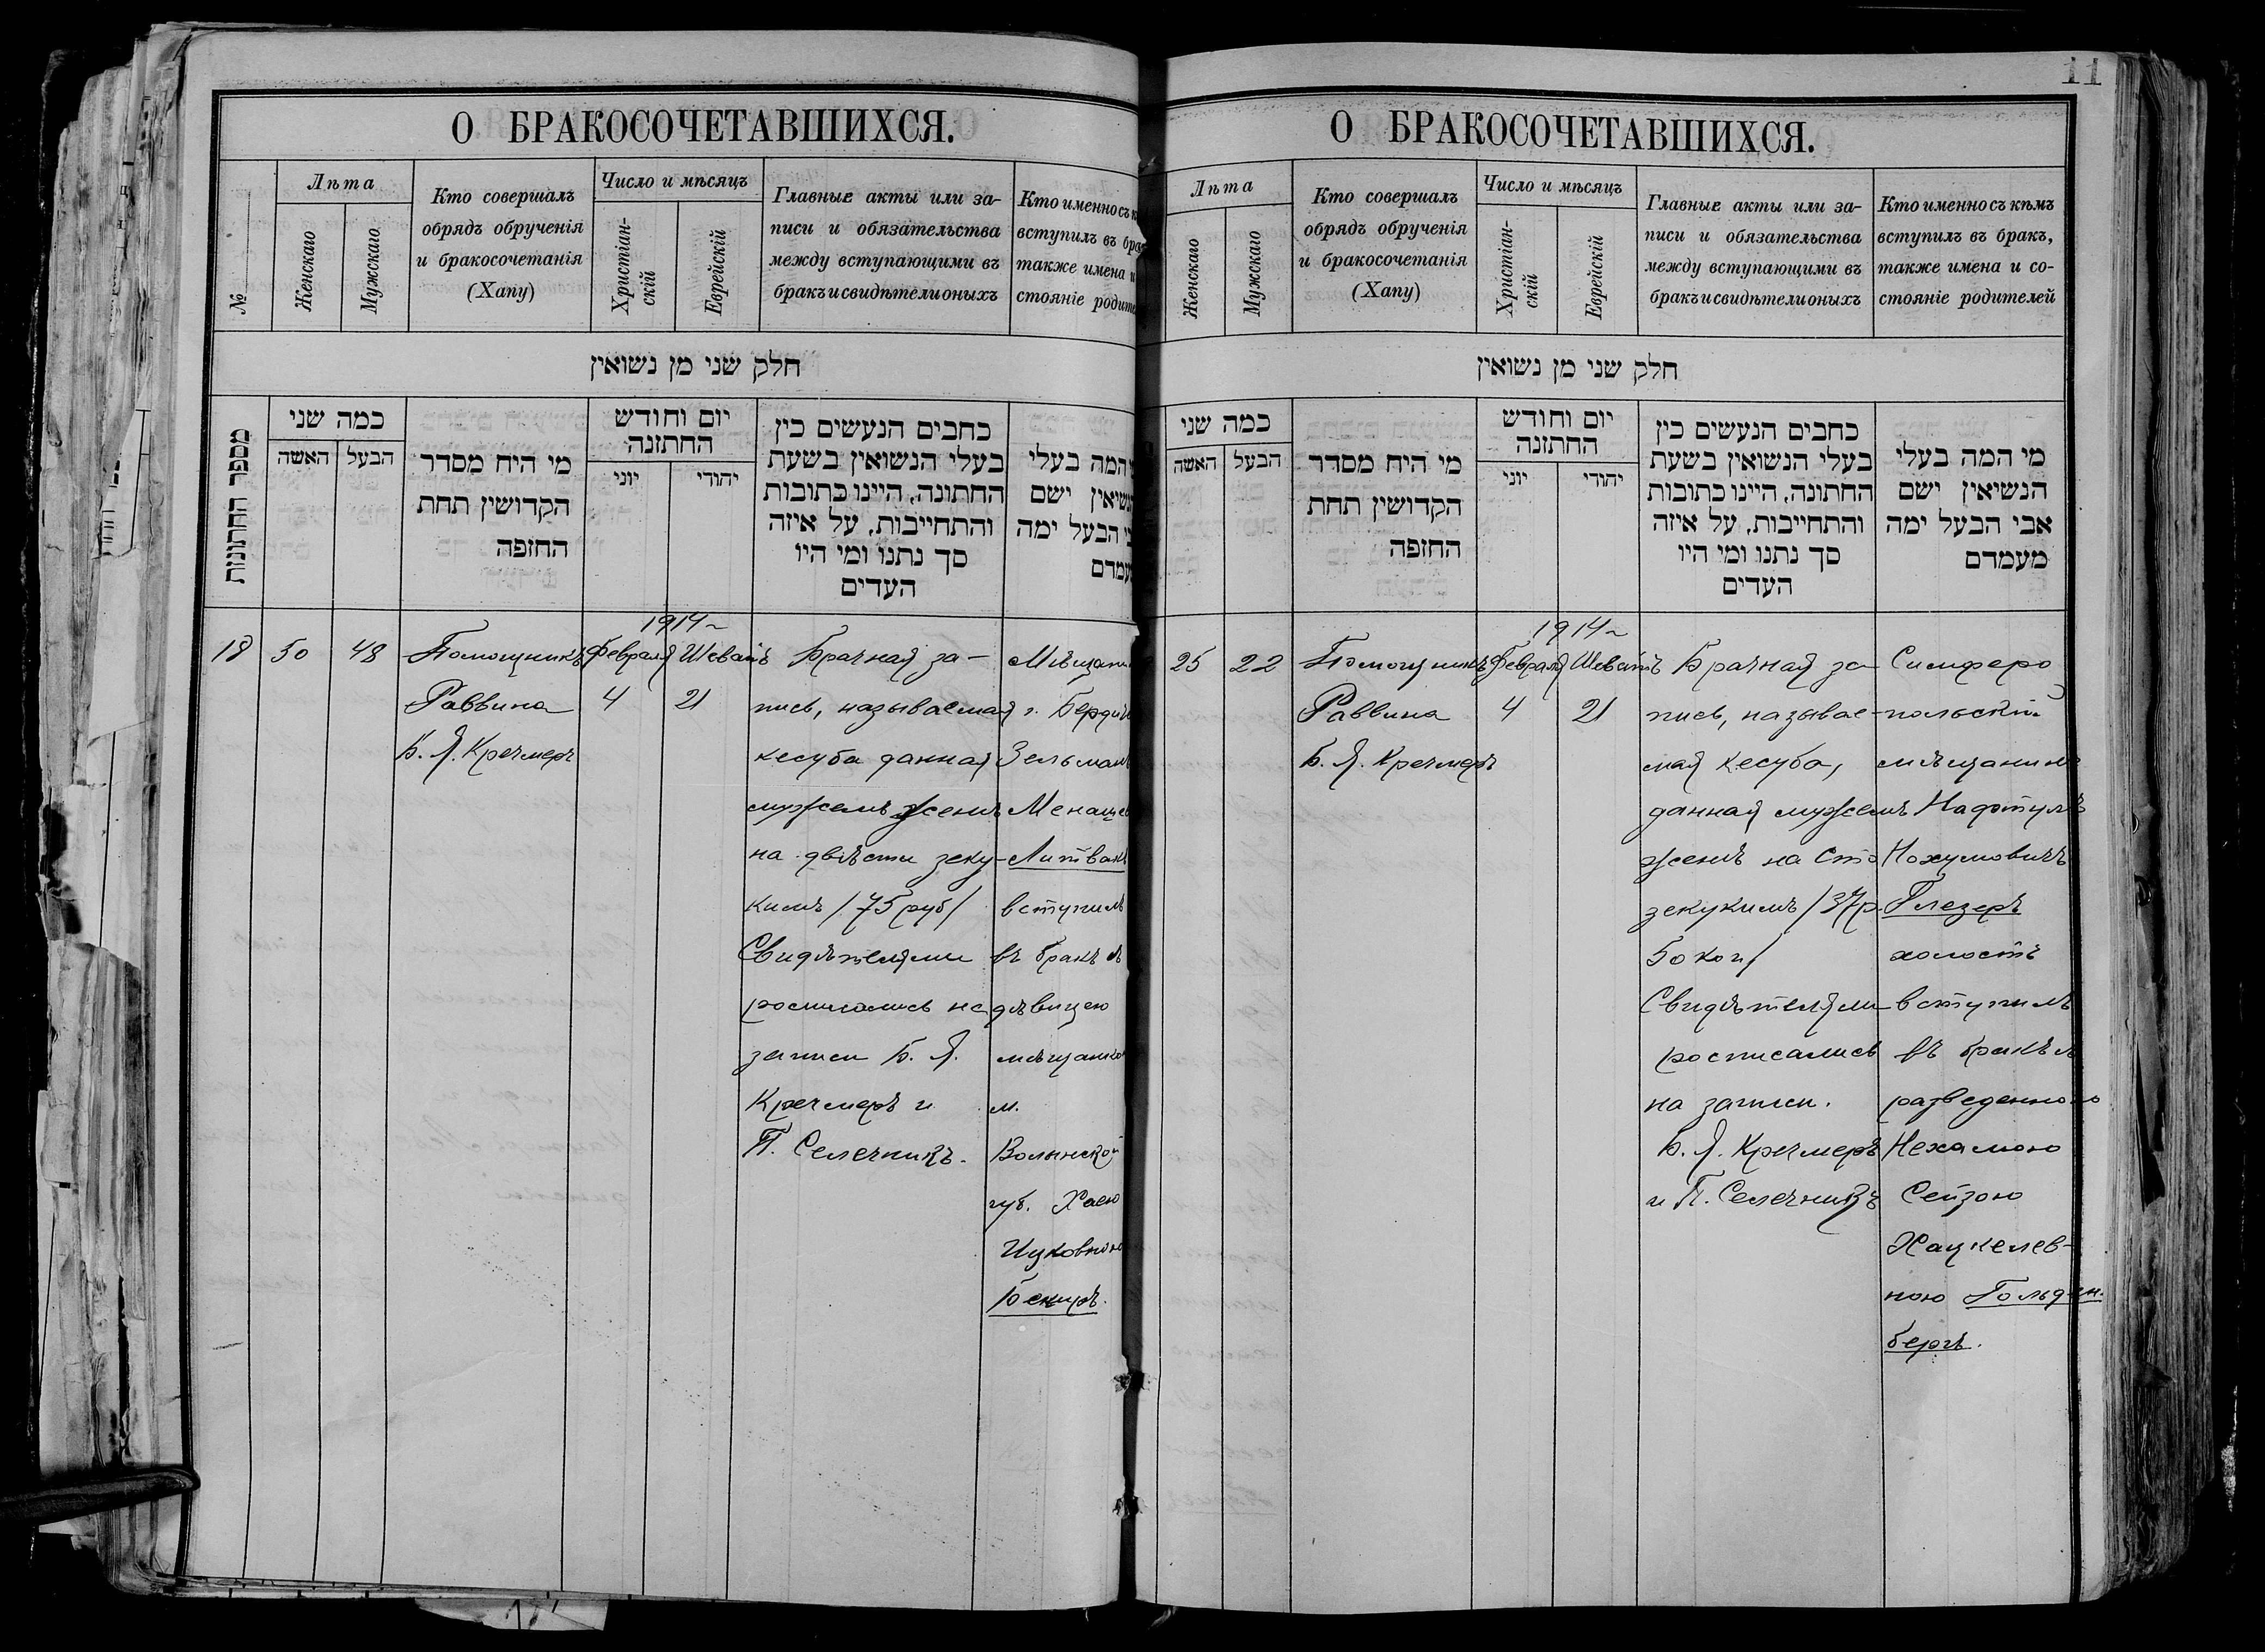 О БРАКОСОЧЕТАВШИХСЯ.
№
Лѣта
Женскаго
Мужскаго
Кто совершалъ
обрядъ обрученія
и бракосочетанія
(Хапу)
Число и мѣсяцъ
Христіан-
скій
Еврейскій
Главные акты или за-
писи и обязательства
между вступающими въ
бракъ и свидѣтели оныхъ
Кто именно съ к
вступилъ въ бра
также имена и
стояніе родите
חלק שני מן נשואין
מספר החתונות
כמה שני
האשה
הבעל
מי היח מסדר
הקדושין תחת
החופה
יום וחודש
החתונה
יוני
יהודי
כחבים הנעשים כין
בעלי הנשואין בשעת
החתונה, היינו כתובות
והתחייבות, על איזה
סך נתנו ומי היו
העדים
המה בעלי
ישם
הבעל ימה
18
50
48
Помощникъ
Раввина
Б. Я. Кречмеръ
1914
Февраля
4
Шеватъ
21
Брачная за-
пись, называемая
кесуба данная
мужемъ женѣ
на двѣсти зеку-
кимъ /75 руб/
Свидѣтелями
росписались на
записи Б. Я.
Кречмеръ и
П. Селечникъ.
Мѣщани
г. Бердич
Зельман
Менаше
Литвакъ
вступилъ
въ бракъ съ
дѣвицею
мѣщанко
м.
Волынской
губ. Хаею
Ицковною
11
О БРАКОСОЧЕТАВШИХСЯ.
Лѣта
Женскаго
Мужскаго
Кто совершалъ
обрядъ обрученія
и бракосочетанія
(Хапу)
Число и мѣсяцъ
Христіан-
скій
Еврейскій
Главные акты или за-
писи и обязательства
между вступающими въ
бракъ и свидѣтели оныхъ
Кто именно съ кѣмъ
вступилъ въ бракъ,
также имена и со-
стояніе родителей
חלק שני מן נשואין
כמה שני
האשה
הבעל
מי היח מסדר
הקדושין תחת
החופה
יום וחודש
החתונה
יוני
יהודי
כחבים הנעשים כין
בעלי הנשואין בשעת
החתונה, היינו כתובות
והתחייבות, על איזה
סך נתנו ומי היו
העדים
מי המה בעלי
הנשיאין ישם
אבי הבעל ימה
מעמדם
25
22
Помощникъ
Раввина
Б. Я. Кречмеръ
1914
Февраля
4
Шеватъ
21
Брачная за-
пись, называе-
мая кесуба,
данная мужемъ
женѣ на сто
зекукимъ /37р.
50 коп/
Свидѣтелями
росписались
на записи.
Б. Я. Кречмеръ
и П. Селечникъ
Симферо
польскій
мѣщанинъ
Нафтулъ
Нохумовичъ
Глезеръ
холостъ
вступилъ
въ бракъ съ
разведенною
Нехамою
Сейзою
Хацкелев-
ною Гольден-
бергъ.